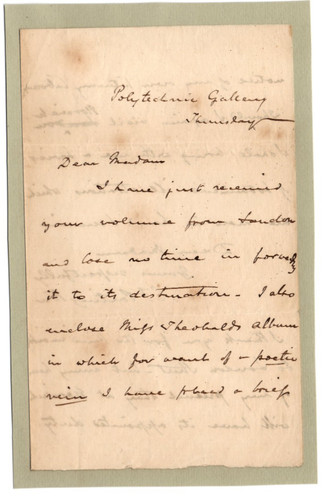 Polytechnic Gallery
Thursday
Dear Madam
I have just received
your volume from London
and lose no time in forwdg
it to its destination - I also
enclose Miss Theobalds Album
in which for want of a poetic
vein I have placed a brief